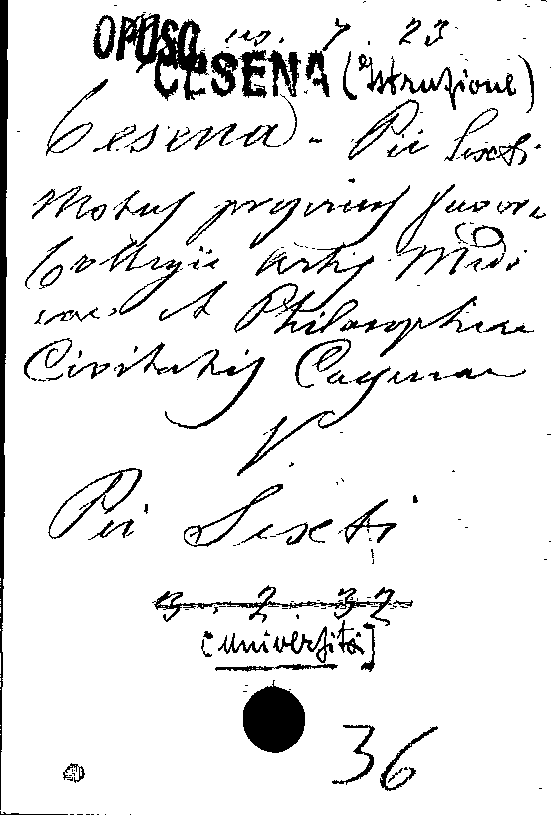 OPUSC. us. 7. 23
CESENA (Istruzione)
Cesena - Pii Sexti
Motus proprius favore
Collegii Artis Medi
cae et Philosophiae
Civitatis Caesenae
V.
Pii Sexti
3. 2. 32
[Università]
36